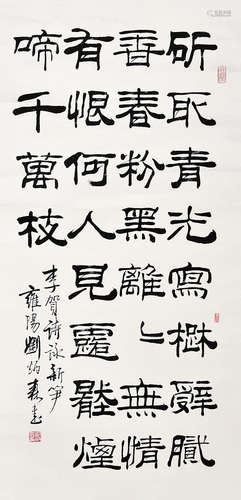 斫取青光寫楚辭膩
香春粉黑離〻無情
有恨何人見露壓煙
啼千萬枝
李賀詩詠新笋
雍陽劉炳森書